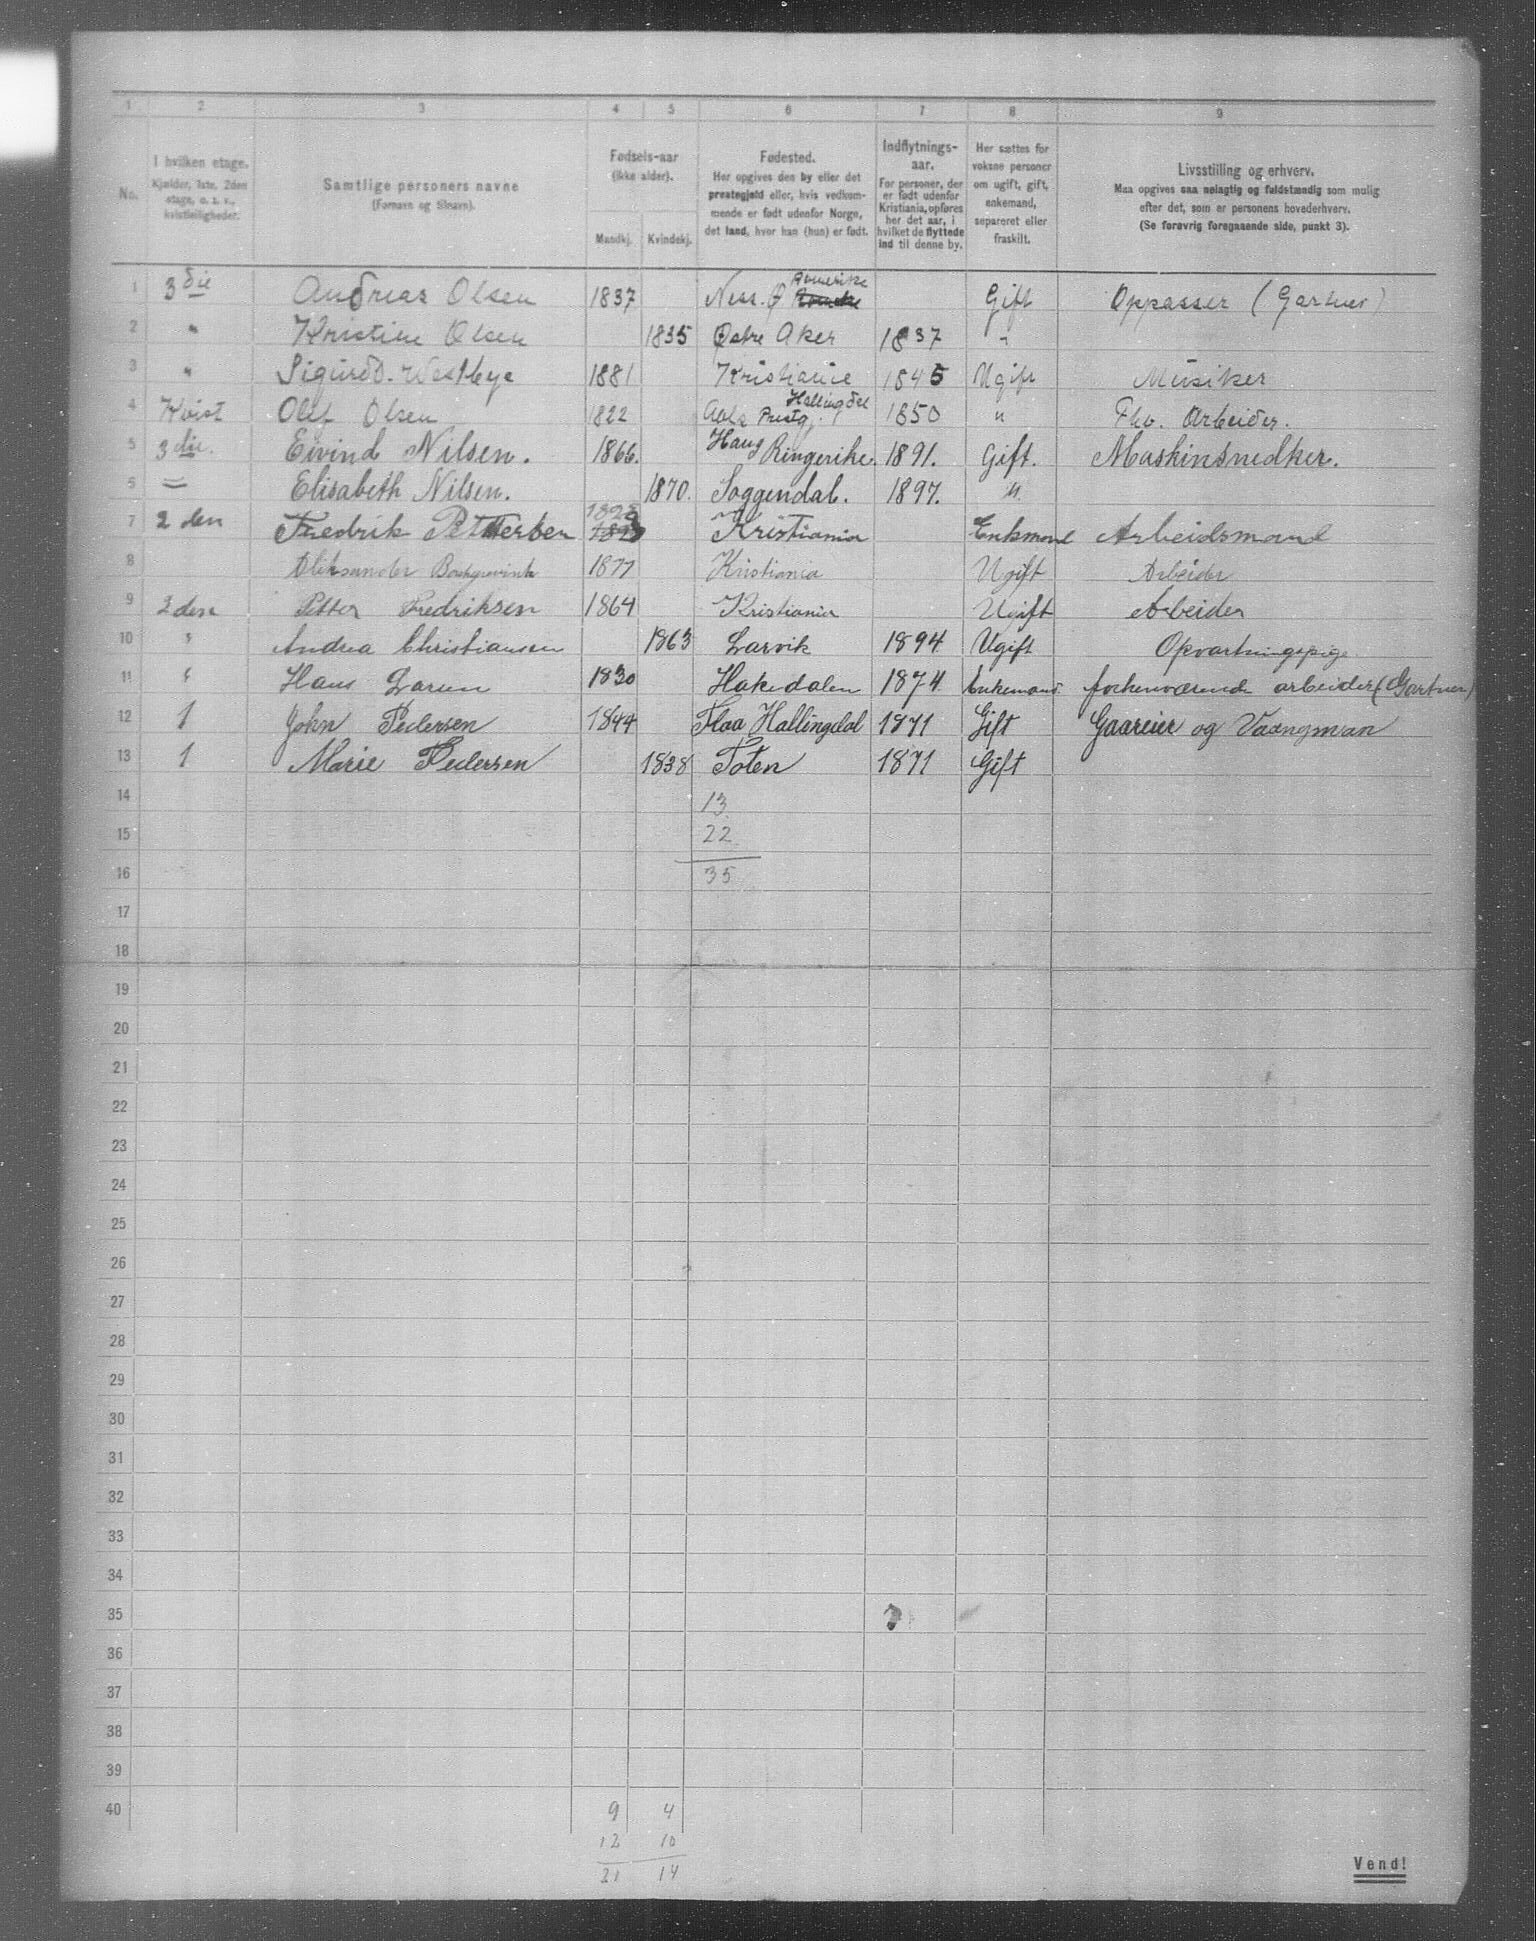 1 2 3 4 5 6 7 8 9
No.
I hvilken etage.
Kjælder, 1ste, 2den
etage, o. s. v.,
kvistleiligheder.
Samtlige personers navne
(Fornavn og tilnavn).
Fødsels-aar
(ikke alder).
Mandkj. Kvindekj.
Fødested.
Her opgives den by eller det
præstegjeld eller, hvis vedkom-
mende er født udenfor Norge,
det land, hvor han (hun) er født.
Indflytnings-
aar.
For personer, der
er født udenfor
Kristiania, opføres
her det aar, i
hvilket de flyttede
ind til denne by.
Her sættes for
voksne personer
om ugift, gift,
enkemand,
separeret eller
fraskilt.
Livsstilling og erhverv.
Maa opgives saa nøiagtig og fuldstændig som mulig
efter det, som er personens hovederhverv.
(Se forøvrig foregaaende side, punkt 3).
1 3die Andreas Olsen 1837 Ness. Ø Romerike Gift Oppasser (Gartner)
2 " Kristine Olsen 1835 Østre Aker 1837 "
3 " Sigurd. Westbye 1881 Kristiania 1845 Ugift Musiker
4 Kvist Olef Olsen 1822 Aals Prestg. Hallingdal 1850 " Fhv. Arbeider.
5 3die. Eivind Nilsen. 1866. Haug Ringerike 1891. Gift. Maskinsnedker.
6 = Elisabeth Nilsen. 1870. Soggendal. 1897. "
7 2den Fredrik 1828 Kristiania Enkmand Arbeidsmand
8 Aleksander 1877 Kristiania Ugift Arbeider
9 2den Petter Fredriksen 1864 Kristiania Ugift Arbeider
10 " Andrea Christiansen 1863 Larvik 1894 Ugift Opvartningspige
11 " Hans Larsen 1830 Hakedalen 1874 Enkemand forhenværende arbeider (Gartner)
12 1 John Pedersen 1844 Flaa Hallingdal 1871 Gift Gaareier og Vaangman
13 1 Marie Pedersen 1838 Toten 1871 Gift
14 13
15 22
16 35
17
18
19
20
21
22
23
24
25
26
27
28
29
30
31
32
33
34
35
36
37
38
39
40 9 4
12 10
21 14
Vend!